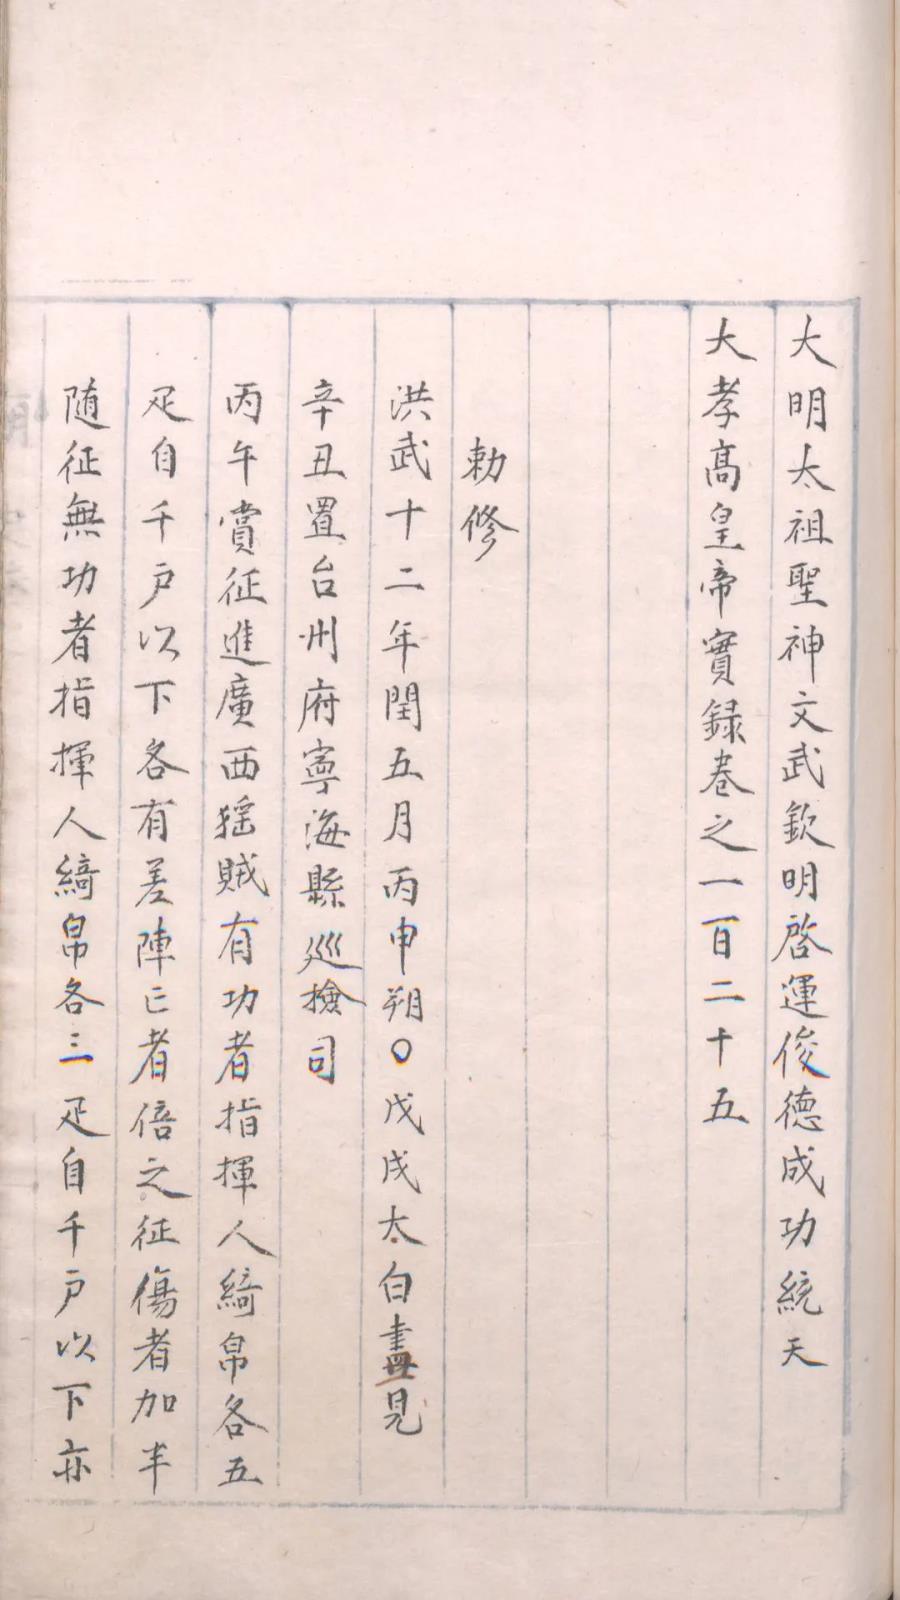 大明太祖聖神文武欽明啓運俊德成功統天
大孝髙皇帝實録卷之一百二十五
勅修
洪武十二年閏五月丙申朔○戊戌太白晝見
辛丑置台州府寧海縣巡撿司
丙午賞征進廣西猺賊有功者指揮人綺帛各五
疋自千戶以下各有差陣亡者倍之征傷者加半
随征無功者指揮人綺帛各三疋自千戶以下亦